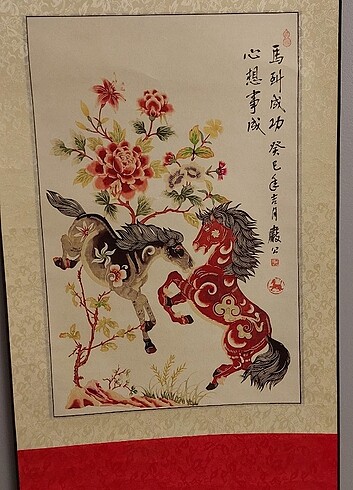 馬到成功 癸巳年吉月
心想事成